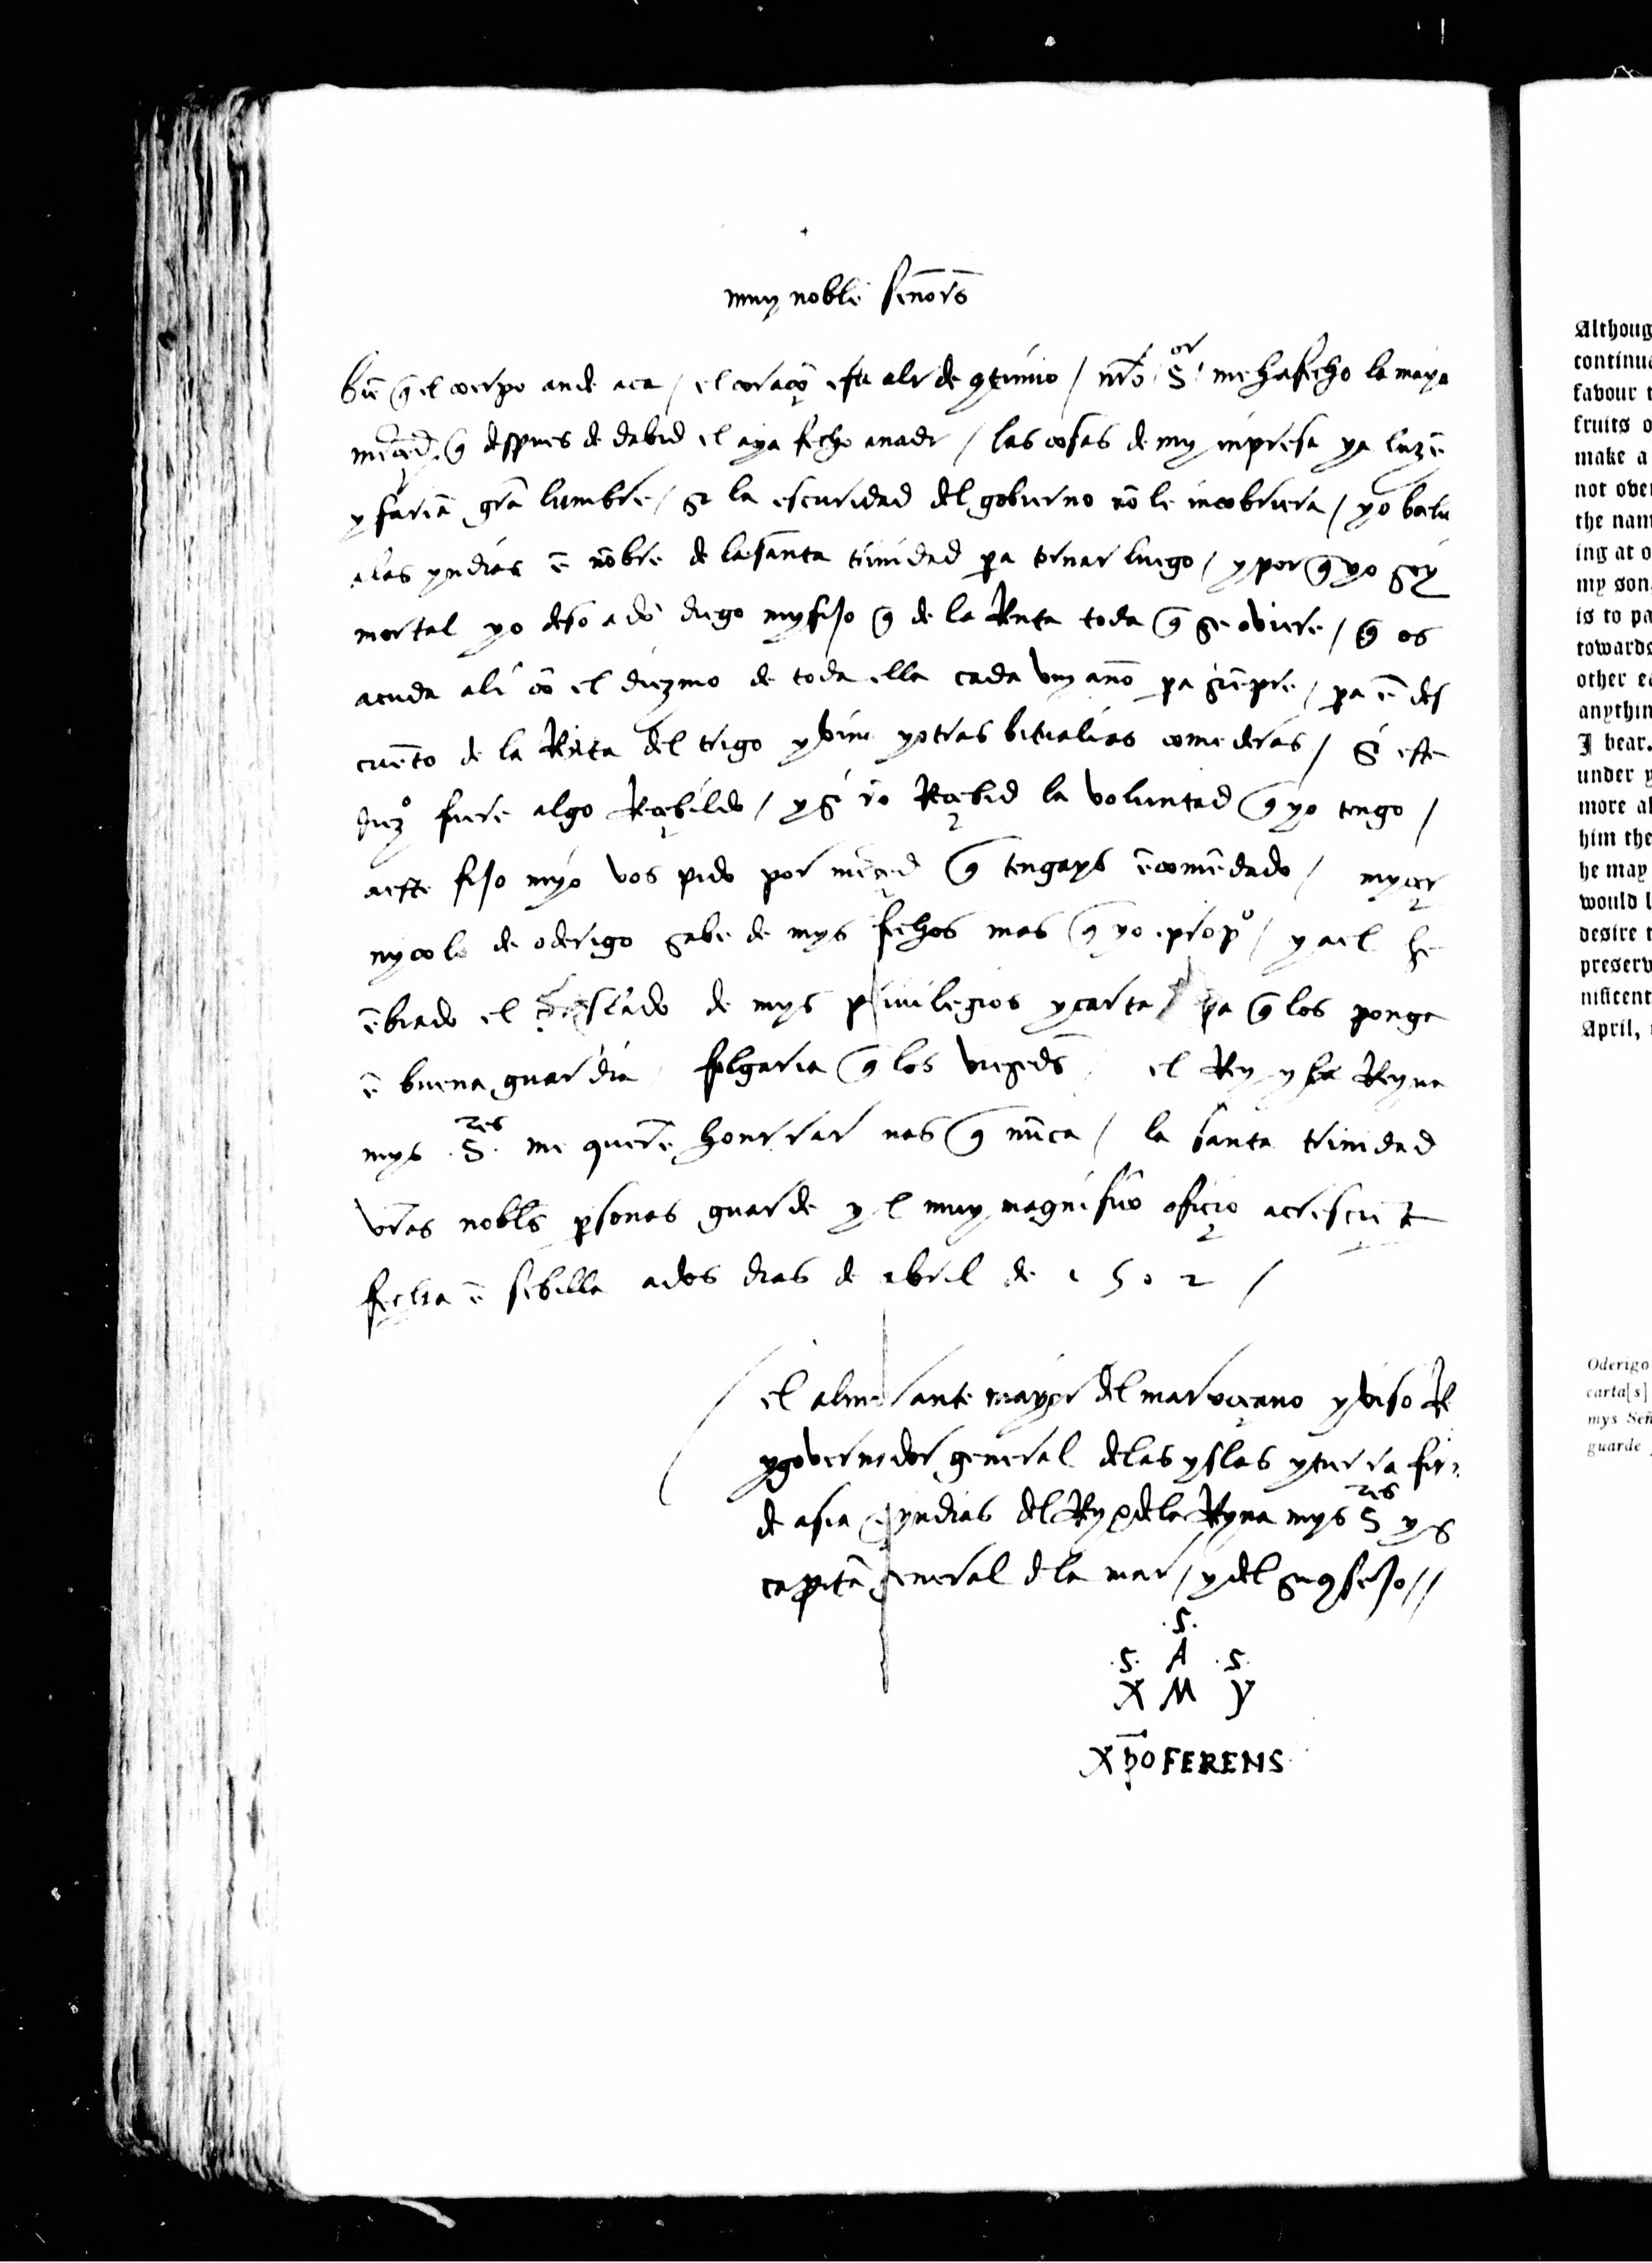 muy noble señors̄
biē q̃ el coerpo ande aca / el coraçō esta ali de gtinuo / nr̄o .S.ᵒʳ me ha fecho la maya
merçed q̃ despues de dabid el aya fecho a nadi / las cosas de my inpresa ya luzē
y fariā grā lumbre / si la escuridad del gobierno nō le incobriera / yo bolui
a las yndias ē nōbre de la santa trinidad pa tornar luego / y por q̃ yo soy
mortal yo deso a dō diego my fijo q̃ de la Rēta toda q̃ se oviere / q̃ os
acuda ali cō el diezmo de toda ella cada vn año pa siēpre / pa ē des
cuēto de la Rēta del trigo y vino y otras bitualias comederas / si este
diezº fuere algo Reçebildo / y si nō Reçebid la voluntad q̃ yo tengo /
a este fijo myo vos pido por merçed q̃ tengays ēcomēdado / myçer
nycolo de oderigo sabe de mys fechos mas q̃ yo propº / y a el he
ēbiado el traslado de mys priuilegios y carta pa q̃ los ponga
ē buena guardia folgaria q̃ los viesedˢ el Rey y la Reyna
mys .S.ʳᵉˢ me quierē honrrar mas q̃ nūca / la santa trinidad
vr̄as nobles p̱sonas guarde y l muy magnifico oficio acresciēte
fecha ē sebilla a dos dias de abril de 1502 /
el almirante mayor del mar oçeano y viso R
y governador general de las yslas y tierra fir
de asia e yndias del Rey e de la Reyna mys S ʳᵉˢ y s
capitā general de la mar / y del su gseso //
.S.
.S. A .S.
X M Y
Xp̄o FERENS
Althoug
continua
favour t
fruits o
make a
not over
the nam
ing at o
my son,
is to pa
towards
other ea
anythin
I bear.
under y
more al
him the
he may
would l
desire t
preserv
nificent
April,
Oderigo
carta[s]
mys Señ
guarde